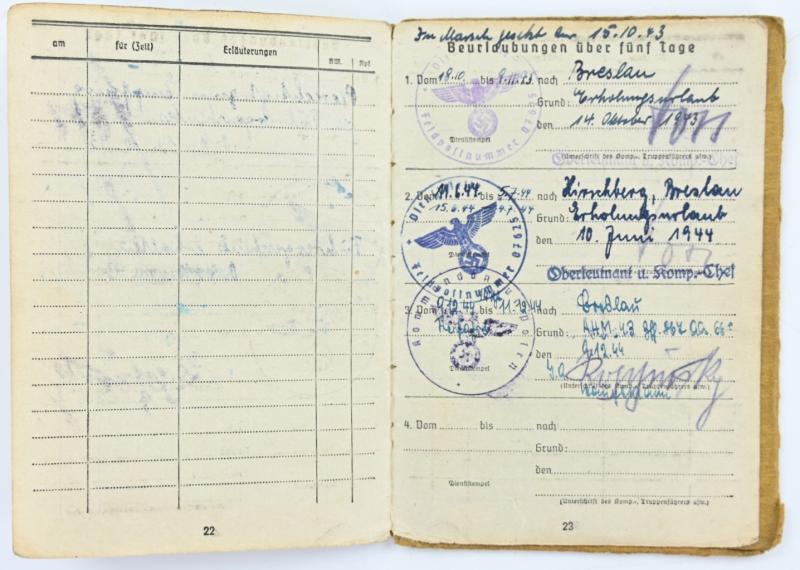 am für (Zeit) Erläuterungen RM. Rpf.
22
In Marsch gesetzt 15.10.43
Beurlaubungen über fünf Tage
1. Vom 18.10. bis nach Breslau
Grund: Erholungsurlaub
den 14. Oktober 1943
Feldpostnummer 07625
Dienststempel
(Unterschrift des Komp.-, Truppenführers usw.)
Oberleutnant u. Komp.-Chef
2. Vom 11.6.44 bis 5.7.44 nach Hirschberg, Breslau
15.6.44
Grund: Erholungsurlaub
den 10. Juni 1944
Feldpostnummer 07625
Dienststempel
Oberleutnant u. Komp.-Chef
3. Vom bis 11.12.44 nach Breslau
Grund:
den 9.12.44
Dienststempel
(Unterschrift des Komp.-, Truppenführers usw.)
4. Vom bis nach
Grund:
den
Dienststempel
(Unterschrift des Komp.-, Truppenführers usw.)
23